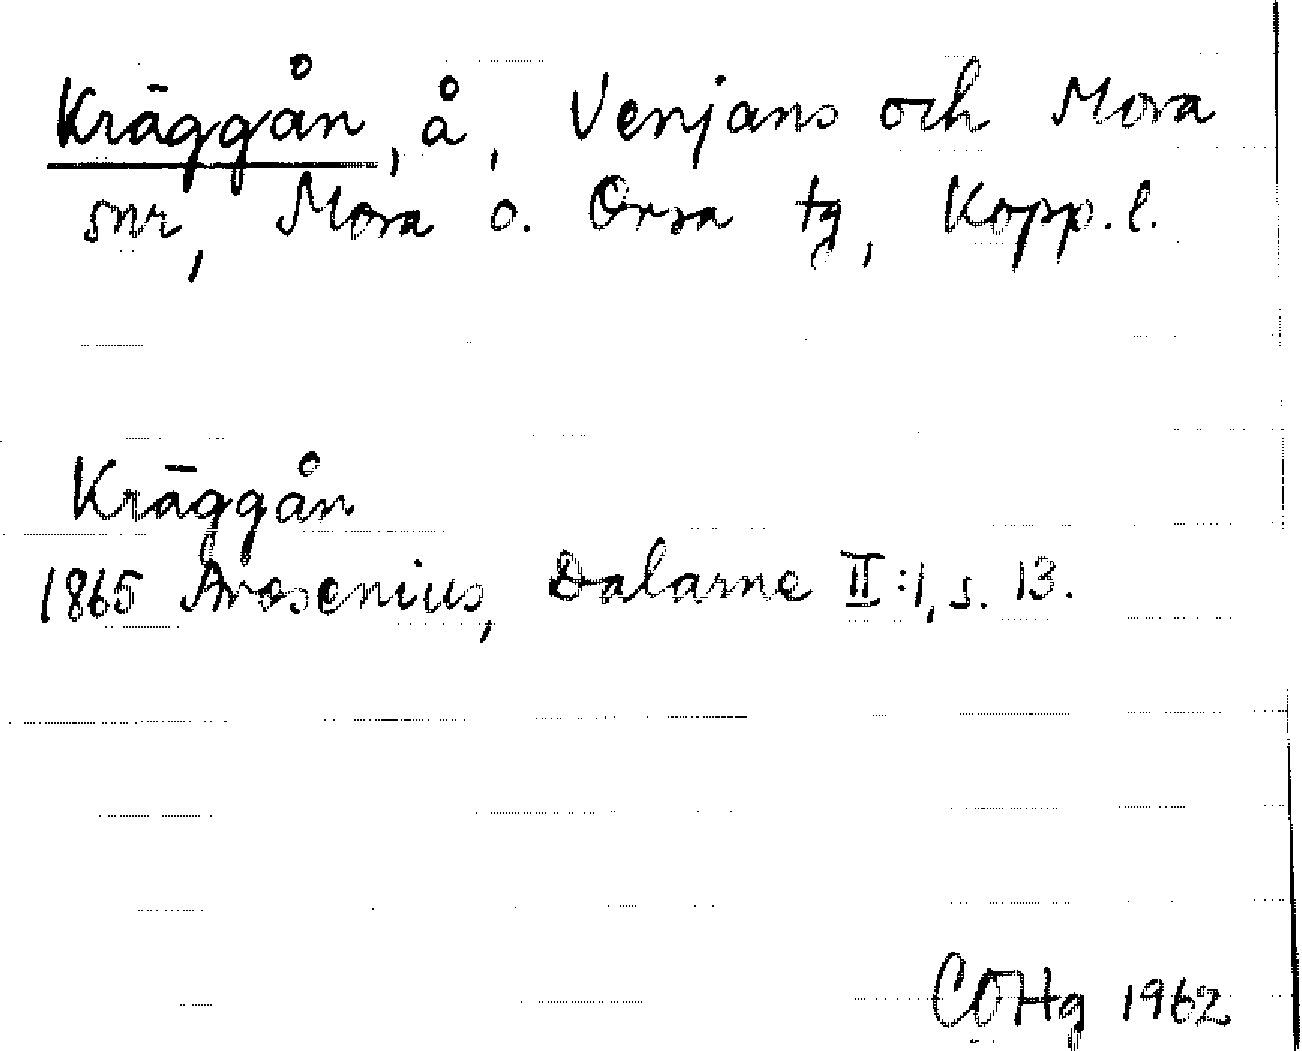 Kräggån, å, Venjans och Mora
snr, Mora o. Orsa tg, Kopp. l.
Kräggån
1865 Arosenius, Dalarne II:1, s. 13.
COHg 1962